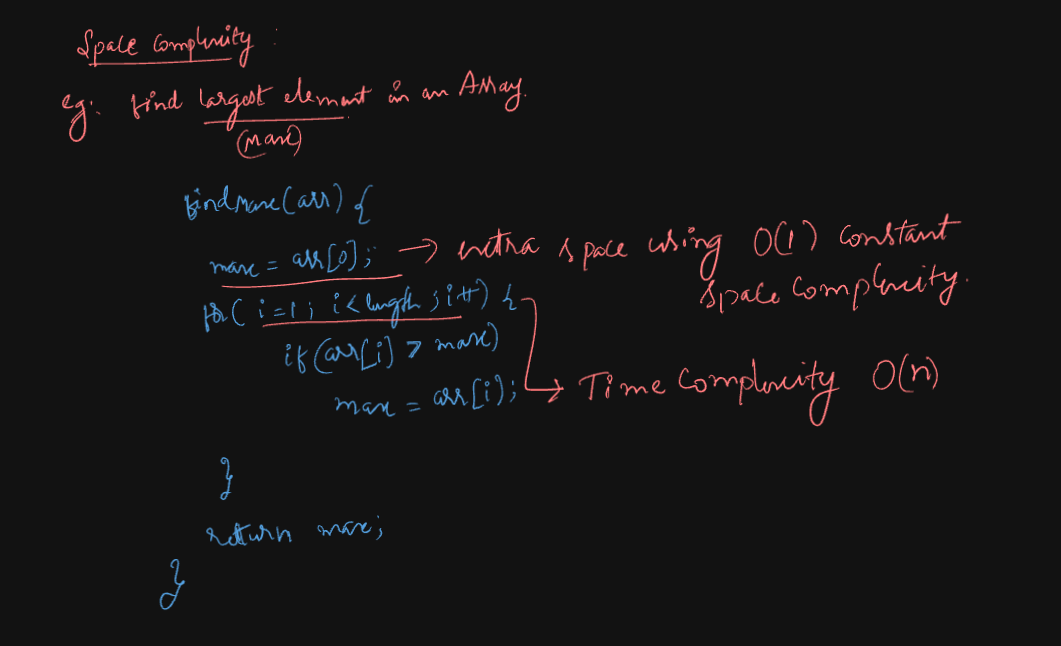 Space Complexity :
eg: find largest element in an Array.
(max)
findmax(arr) {
max = arr[0]; → extra space using O(1) constant
space complexity.
for( i=1; i<length; i++) {
if(arr[i] > max)
max = arr[i]; → Time Complexity O(n)
}
return max;
}